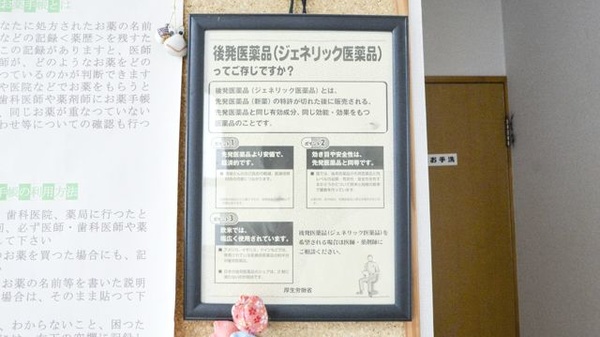 お薬手帳とは
なたに処方されたお薬の名前
などの記録<薬歴>を残すた
この記録がありますと、医師
師が、どのようなお薬をどの
っているのかが判断できます
や医院などでお薬をもらうと
歯科医師や薬剤師にお薬手帳
、同じお薬が重なっていない
わせ等についての確認も行っ
手帳の利用方法
歯科医院、薬局に行ったと
、必ず医師・歯科医師や薬
して下さい
のお薬を買った場合にも、記
お薬の名前等を書いた説明
場合は、そのまま貼って下
、わからないこと、困った
後発医薬品(ジェネリック医薬品)
ってご存じですか?
後発医薬品(ジェネリック医薬品)とは、
先発医薬品(新薬)の特許が切れた後に販売される、
先発医薬品と同じ有効成分、同じ効能・効果をもつ
医薬品のことです。
ポイント1
先発医薬品より安価で、
経済的です。
ポイント2
効き目や安全性は、
先発医薬品と同等です。
ポイント3
欧米では、
幅広く使用されています。
後発医薬品(ジェネリック医薬品)を
希望される場合は医師・薬剤師に
ご相談ください。
厚生労働省
お手洗